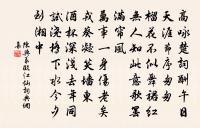 高詠楚詞酬午日
天涯節序匆匆
榴花不似舞裙紅
無人知此意歌罷
滿簾風
萬事一身傷老矣
戎葵凝笑墻東
酒杯深淺去年同
試澆橋下水今夕
到湘中
陳與義臨江仙詞典網
集